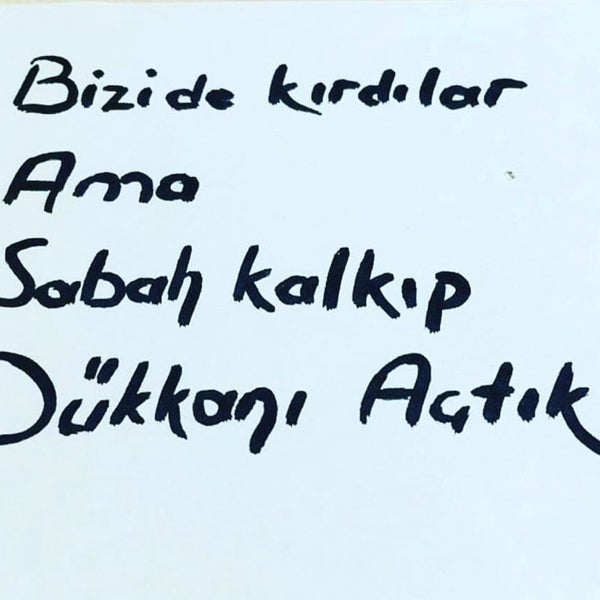 Bizi de kırdılar
Ama
Sabah kalkıp
Dükkanı Açtık